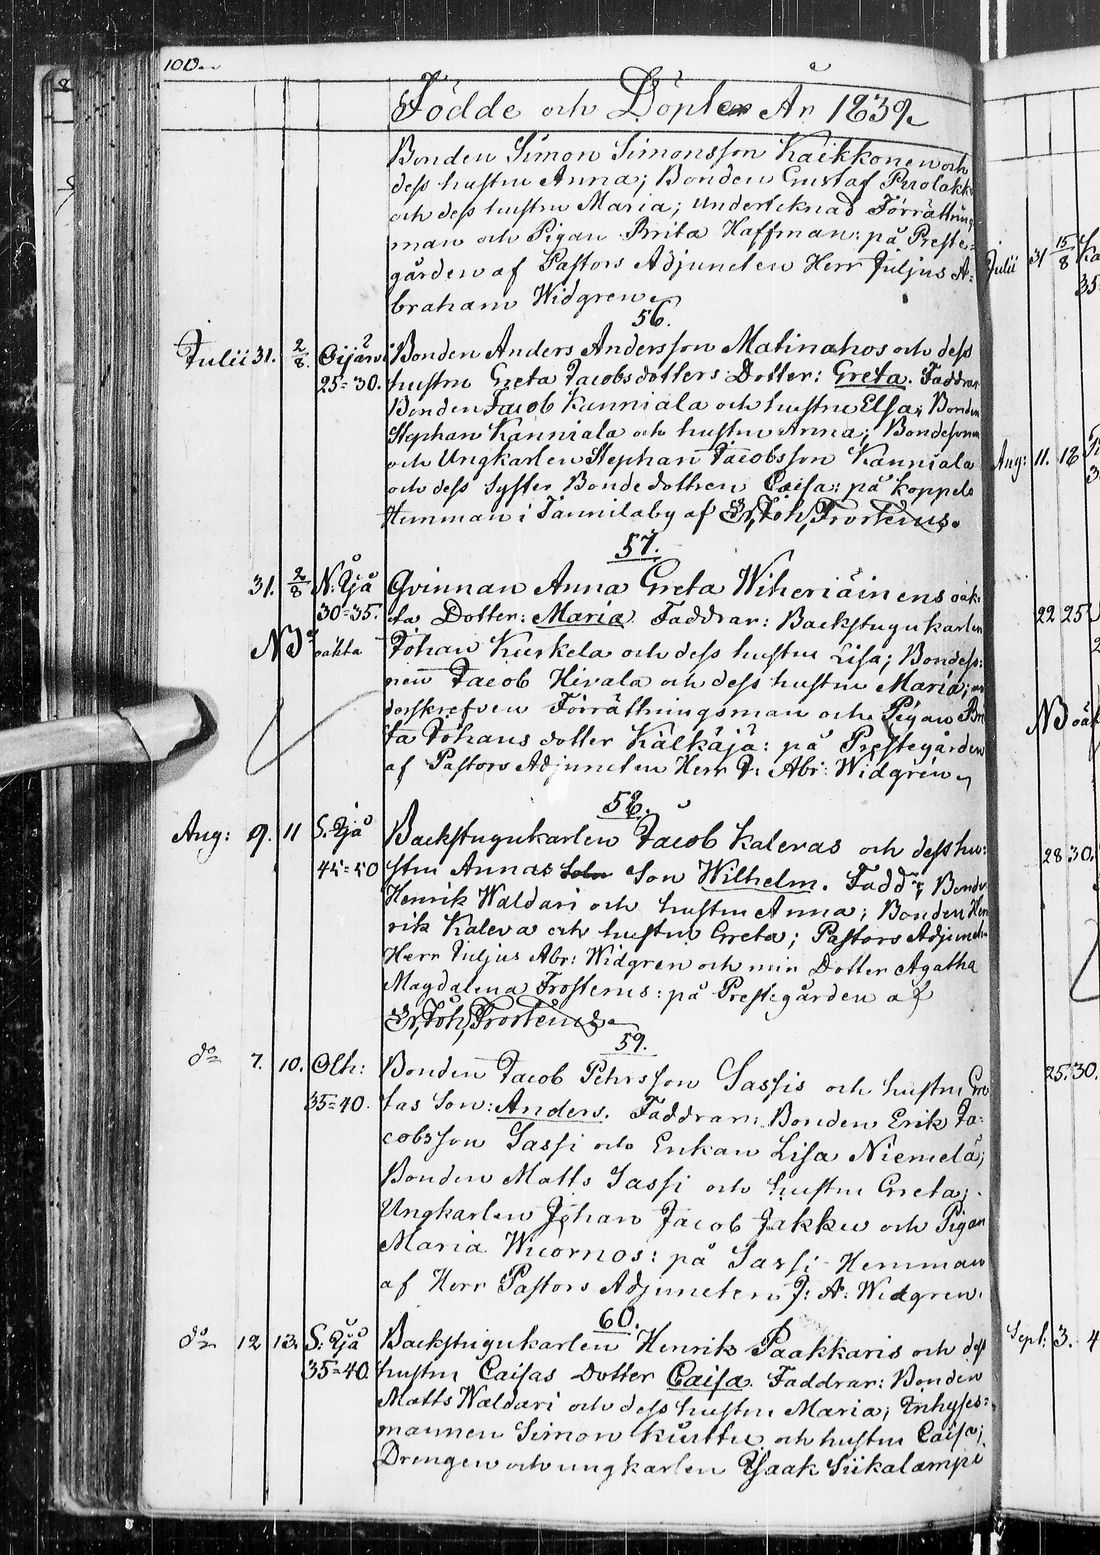 Födde och Döpte År 1839.
Bonden Simon Simonsson Kaikkonen och
dess hustru Anna; Bonden Gustaf
och dess hustru Maria; undertecknad Förrättnings
man och Pigan Brita Haffman: på Preste-
gården af Pastors Adjuncten Herr Juljus A-
braham Widgren.
56.
Julii 31. 2/8. Oijärvi Bonden Anders Andersson Matinahos och dess
25=30. hustru Greta Jacobsdotters Dotter: Greta. Faddrar
Bonden Jacob Kanniala och hustru Elsa; Bonden
Stephan Kanniala och hustru Anna; Bondesonen
och Ungkarlen Stephan Jacobsson Kanniala
och dess Syster Bondedottren Caisa: på Koppelo
Hemman i Tannilaby af Er, Joh, Frosterus.
57.
31. 2/8 N: Ijå Qvinnan Anna Greta Witeriäinens oäk-
30=35. ta Dotter: Maria. Faddrar: Backstugukarlen
NB oäkta Johan Kurkela och dess hustru Lisa; Bondesso-
nen Jacob Hivala och dess hustru Maria; un
derskrefven Förrättningsman och Pigan Bri
ta Johans dotter Kälkäjä: på Prestegården
af Pastors Adjuncten Herr J: Abr: Widgren
58.
Aug: 9. 11 S. Ijå Backstugukarlen Jacob Kalevas och dess hu-
45=50 stru Annas Son Wilhelm. Faddr; Bonden
Henrik Waldari och hustru Anna; Bonden Hen
rik Kaleva och hustru Greta; Pastors Adjuncten
Herr Juljus Abr: Widgren och min Dotter Agatha
Magdalena Frosterus: på Prestegården af
Er, Joh, Frosterus.
59.
do 7. 10. Olh: Bonden Jacob Pehrsson Sassis och hustru Gre
35=40. tas Son: Anders. Faddrar: Bonden Erik Ja-
cobsson Sassi och Enkan Lisa Niemelä;
Bonden Matts Sassi och hustru Greta;
Ungkarlen Johan Jacob Jakku och Pigan
Maria Wuornos: på Sassi Hemman
af Herr Pastors Adjuncten J: A: Widgren.
60.
do 12 13. S: Ijå Backstugukarlen Henrik Paakkaris och dess
35=40. hustru Caisas Dotter Caisa. Faddrar: Bonden
Matts Waldari och dess hustru Maria; Inhyses-
mannen Simon Kurttu och hustru Caisa;
Drengen och ungkarlen Ysaak Siikalampi
Julii 31 15/8
35
Aug: 11. 18
22 25
NB oä
28 30.
25. 30.
Sept: 3. 4